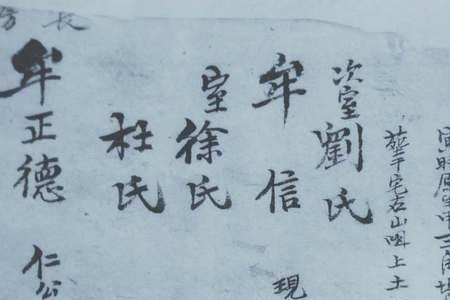 葬于宅右山嘴上土
次室劉氏
牟信 現
室徐氏
杜氏
長房
牟正德 仁公